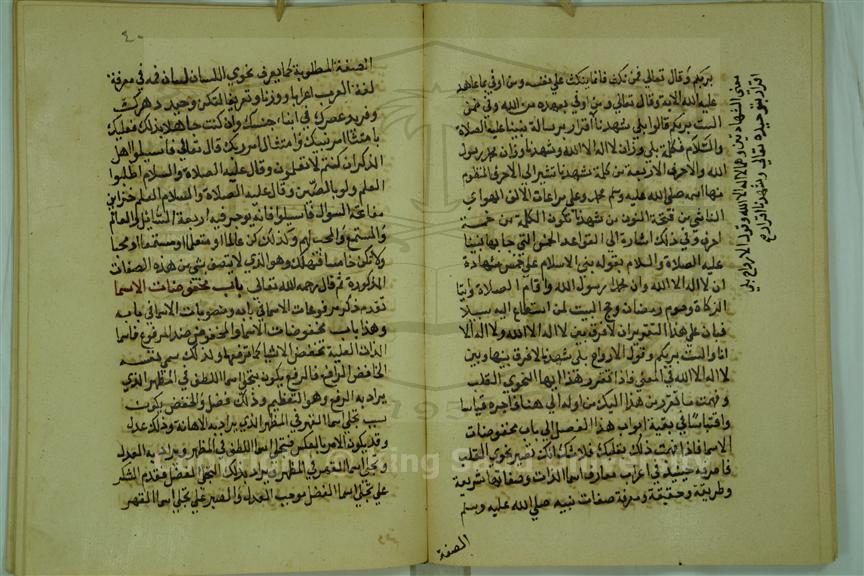 بربكم وقال تعالى فمن نكث فانما ينكث على نفسه ومن اوفى بما عاهد
عليه الله الاية وقال تعالى ومن اوفى بعهده من الله وفي ضمن
الست بربكم قالوا بلى شهدنا اقرار برسالة نبينا عليه الصلاة
والسلام فكلمة بلى وزان لا اله الا الله وشهدنا وزان محمد رسول
الله والاحرف الاربعة من كلمة شهدنا تشير الى الاحرف المنظوم
منها اسمه صلى الله عليه وسلم محمد وعلى مراعات الالف الهوائي
الناشي من فتحة النون من شهدنا تكون الكلمة من خمسة
احرف وفي ذلك اشارة الى القواعد الخمس التي جا بها نبينا
عليه الصلاة والسلام بقوله بني الاسلام على خمس شهادة
ان لا اله الا الله وان محمدا رسول الله واقام الصلاة وايتا
الزكاة وصوم رمضان وحج البيت لمن استطاع اليه سبيلا
فبان على هذا التقرير ان لا فرق بين لا اله الا الله ولا اله الا
انا والست بربكم وقول الارواح بلى شهدنا لا فرق بينها وبين
لا اله الا الله في المعنى فاذا تقرر هذا ايها النحوي القلب
وفهمت ما قررته من هذا اليك من اوله الى هنا فاجره قياسا
واقتباسا في بقية ابواب هذا الفصل الى باب مخفوضات
الاسما فاذا فهمت ذلك بقلبك فلا شك انك تصير نحوي القلب
فاهرع حينئذ في اعراب معارف اسما الذات وصفاتها شريعة
وطريقة وحقيقة ومعرفة صفات نبيه صلى الله عليه وسلم
الصفة
معنى الشهادتين وهما لا اله الا الله وقول الارواح بلى
اقرار بتوحيده تعالى وشهدنا اقرار
٤٠
الصفة المطلوبة كما يعرف نحوي اللسان لسان فمه في معرفة
لغة العرب اعرابها ووزنها وتعريفها لتكن وحيد دهرك
وفريد عصرك في ابناء جنسك وان كنت جاهلا بذلك فعليك
بامتثال امر نبيك وامتثال امر ربك قال تعالى فاسئلوا اهل
الذكر ان كنتم لا تعلمون وقال عليه الصلاة والسلام اطلبوا
العلم ولو بالصين وقال عليه الصلاة والسلام العلم خزاين
مفاتحه السوال فاسئلوا فانه يوجر فيه اربعة السائل والعالم
والمستمع والمحب لهم وكذلك كن عالما او متعلما او مستمعا او محبا
ولا تكن خامسا فتهلك وهو الذي لا يتصف بشي من هذه الصفات
المذكورة ثم قال رحمه الله تعالى باب مخفوضات الاسما
تقدم ذكر مرفوعات الاسما في بابه ومنصوبات الاسما في بابه
وهذا باب مخفوضات الاسما والمخفوض ضد المرفوع فاسما
الذات العلية تخفض الاشيا كما ترفعها ولذلك سمى نفسه
الخافض الرافع فالرفع يكون بتجلي اسما اللطف في المظهر الذي
يراد به الرفع وهو التعظيم وذلك فضل والخفض يكون
بسبب تجلي اسما القهر في المظهر الذي يراد به الاهانة وذلك عدل
وقد يكون الامر بالعكس فيتجلى اسما اللطف في المظهر ويراد به العدل
وتجلي اسما القهر في المظهر ويراد بذلك التجلي الفضل فعدم الشكر
على تجلي اسما الفضل موجب العدل والصبر على تجلي اسما القهر